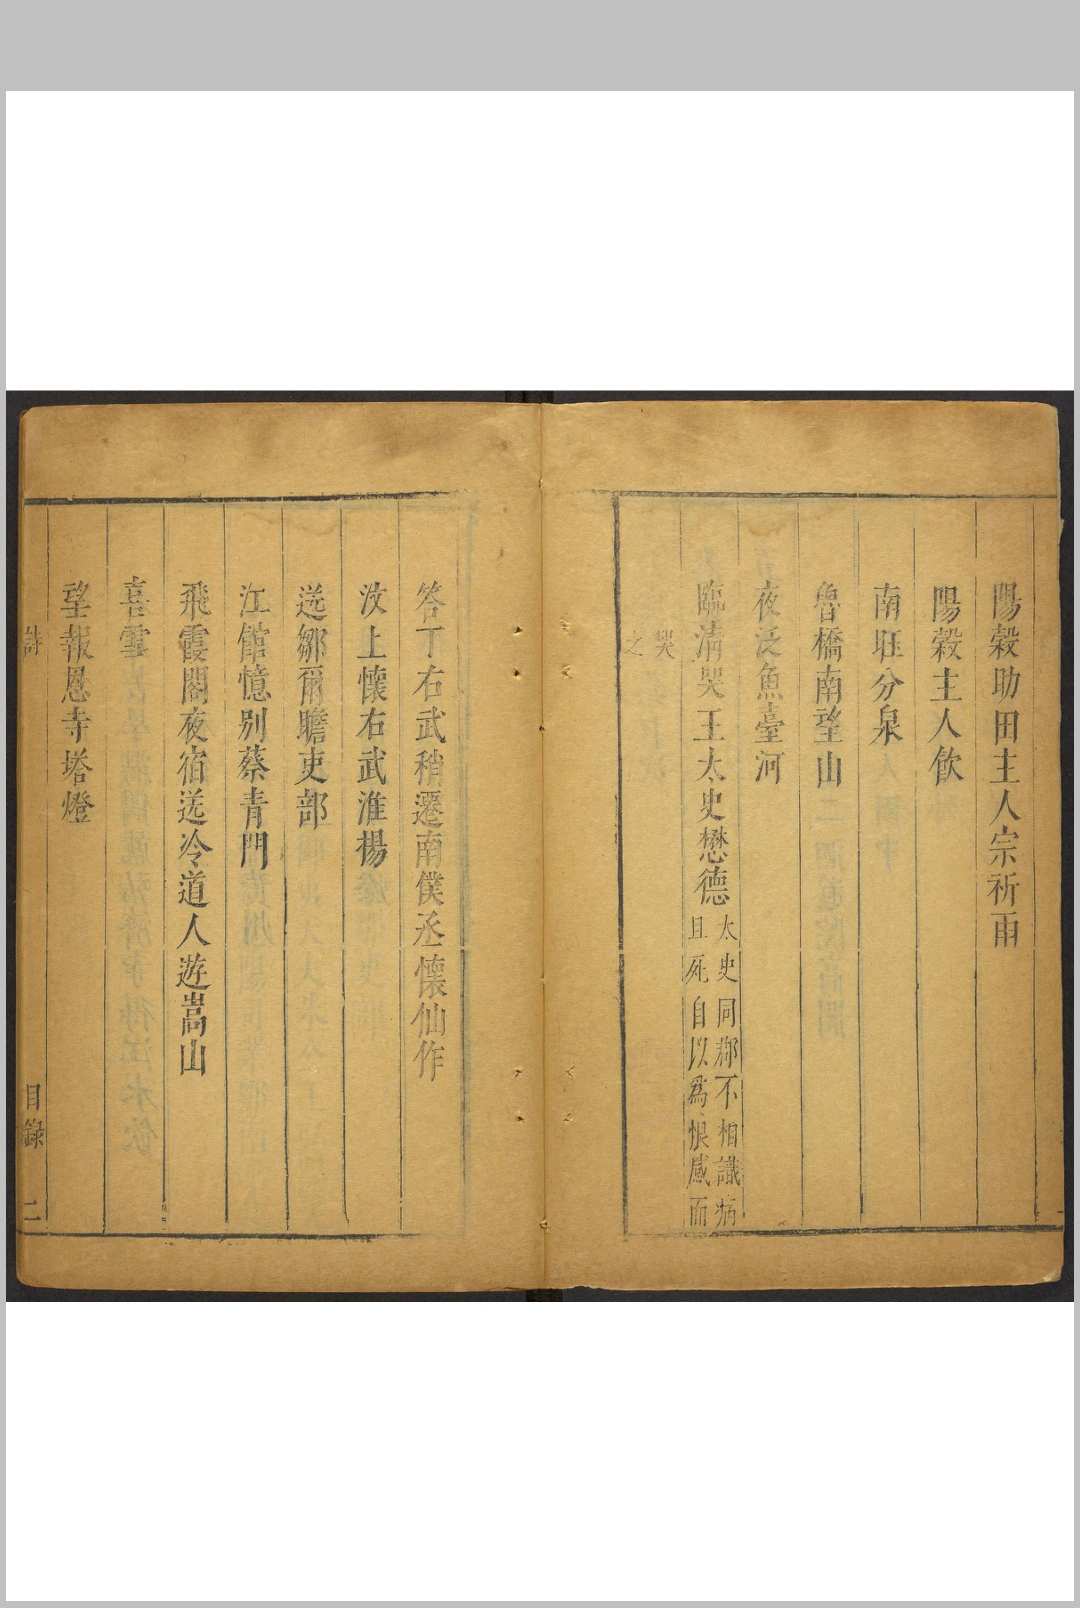 陽穀助田主人宗祈雨
陽穀主人飲
南旺分泉
魯橋南望山
夜泛魚臺河
臨清哭王太史懋德
太史同郡不相識病
且死自以爲恨感而
哭
之
答丁右武稍遷南僕丞懷仙作
汶上懷右武淮揚
送鄒爾瞻吏部
江館憶别蔡青門
飛霞閣夜宿送冷道人遊嵩山
喜霽
望報恩寺塔燈
詩
目錄
二